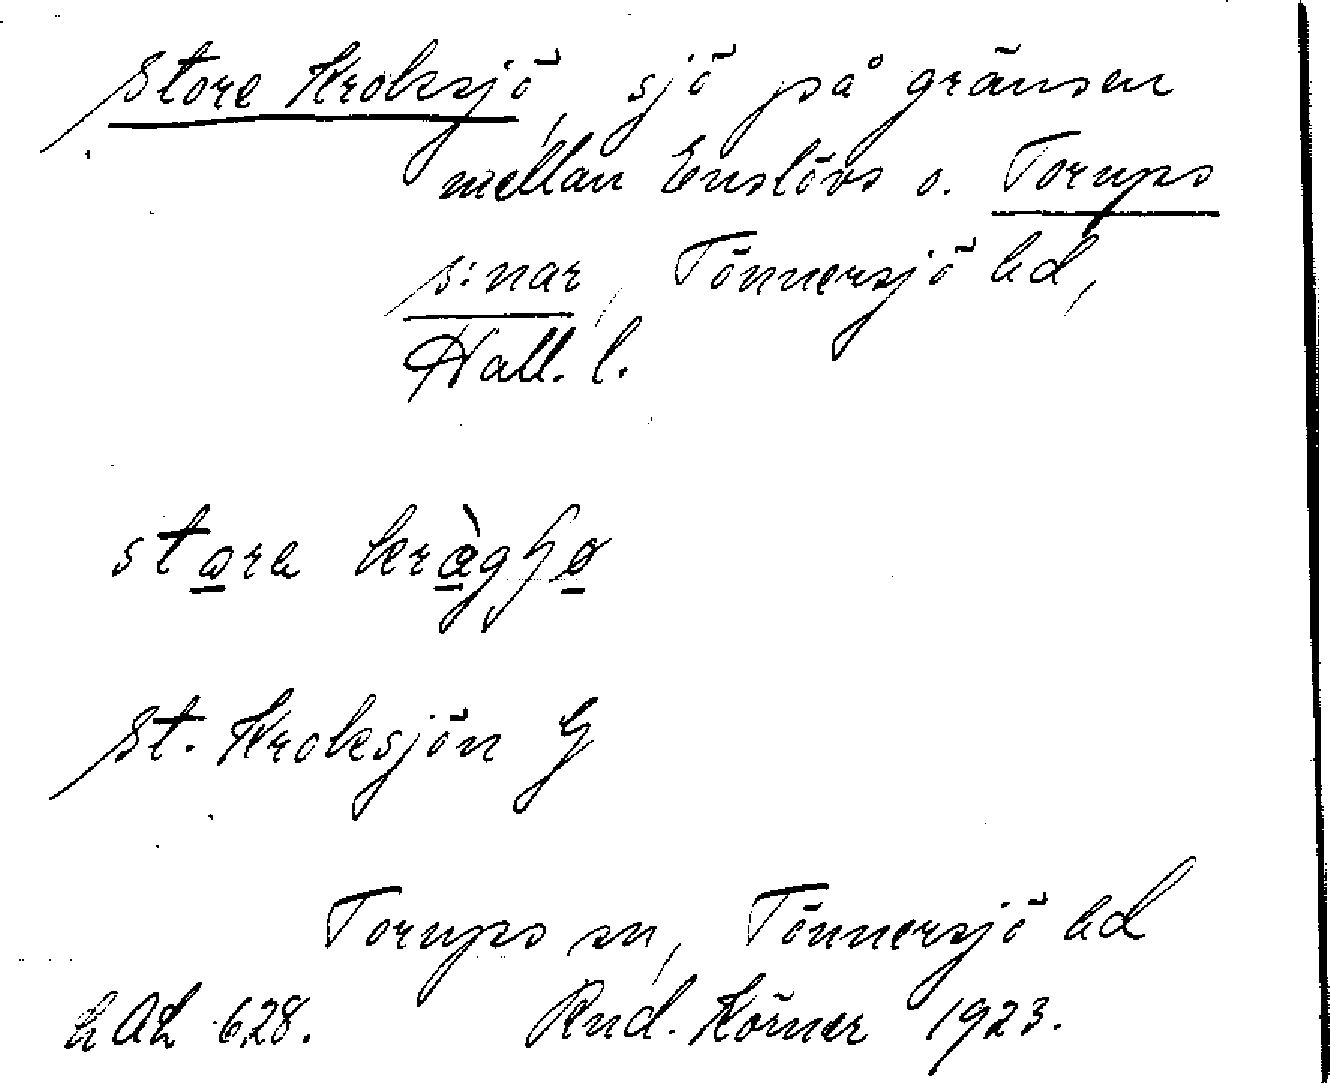 Store Kroksjö, sjö på gränsen
mellan Enslövs o. Torups
s:nar, Tönnersjö hd,
Hall. l.
stora
St. Kroksjön G
Torups sn, Tönnersjö hd
628. Rud. Körner 1923.